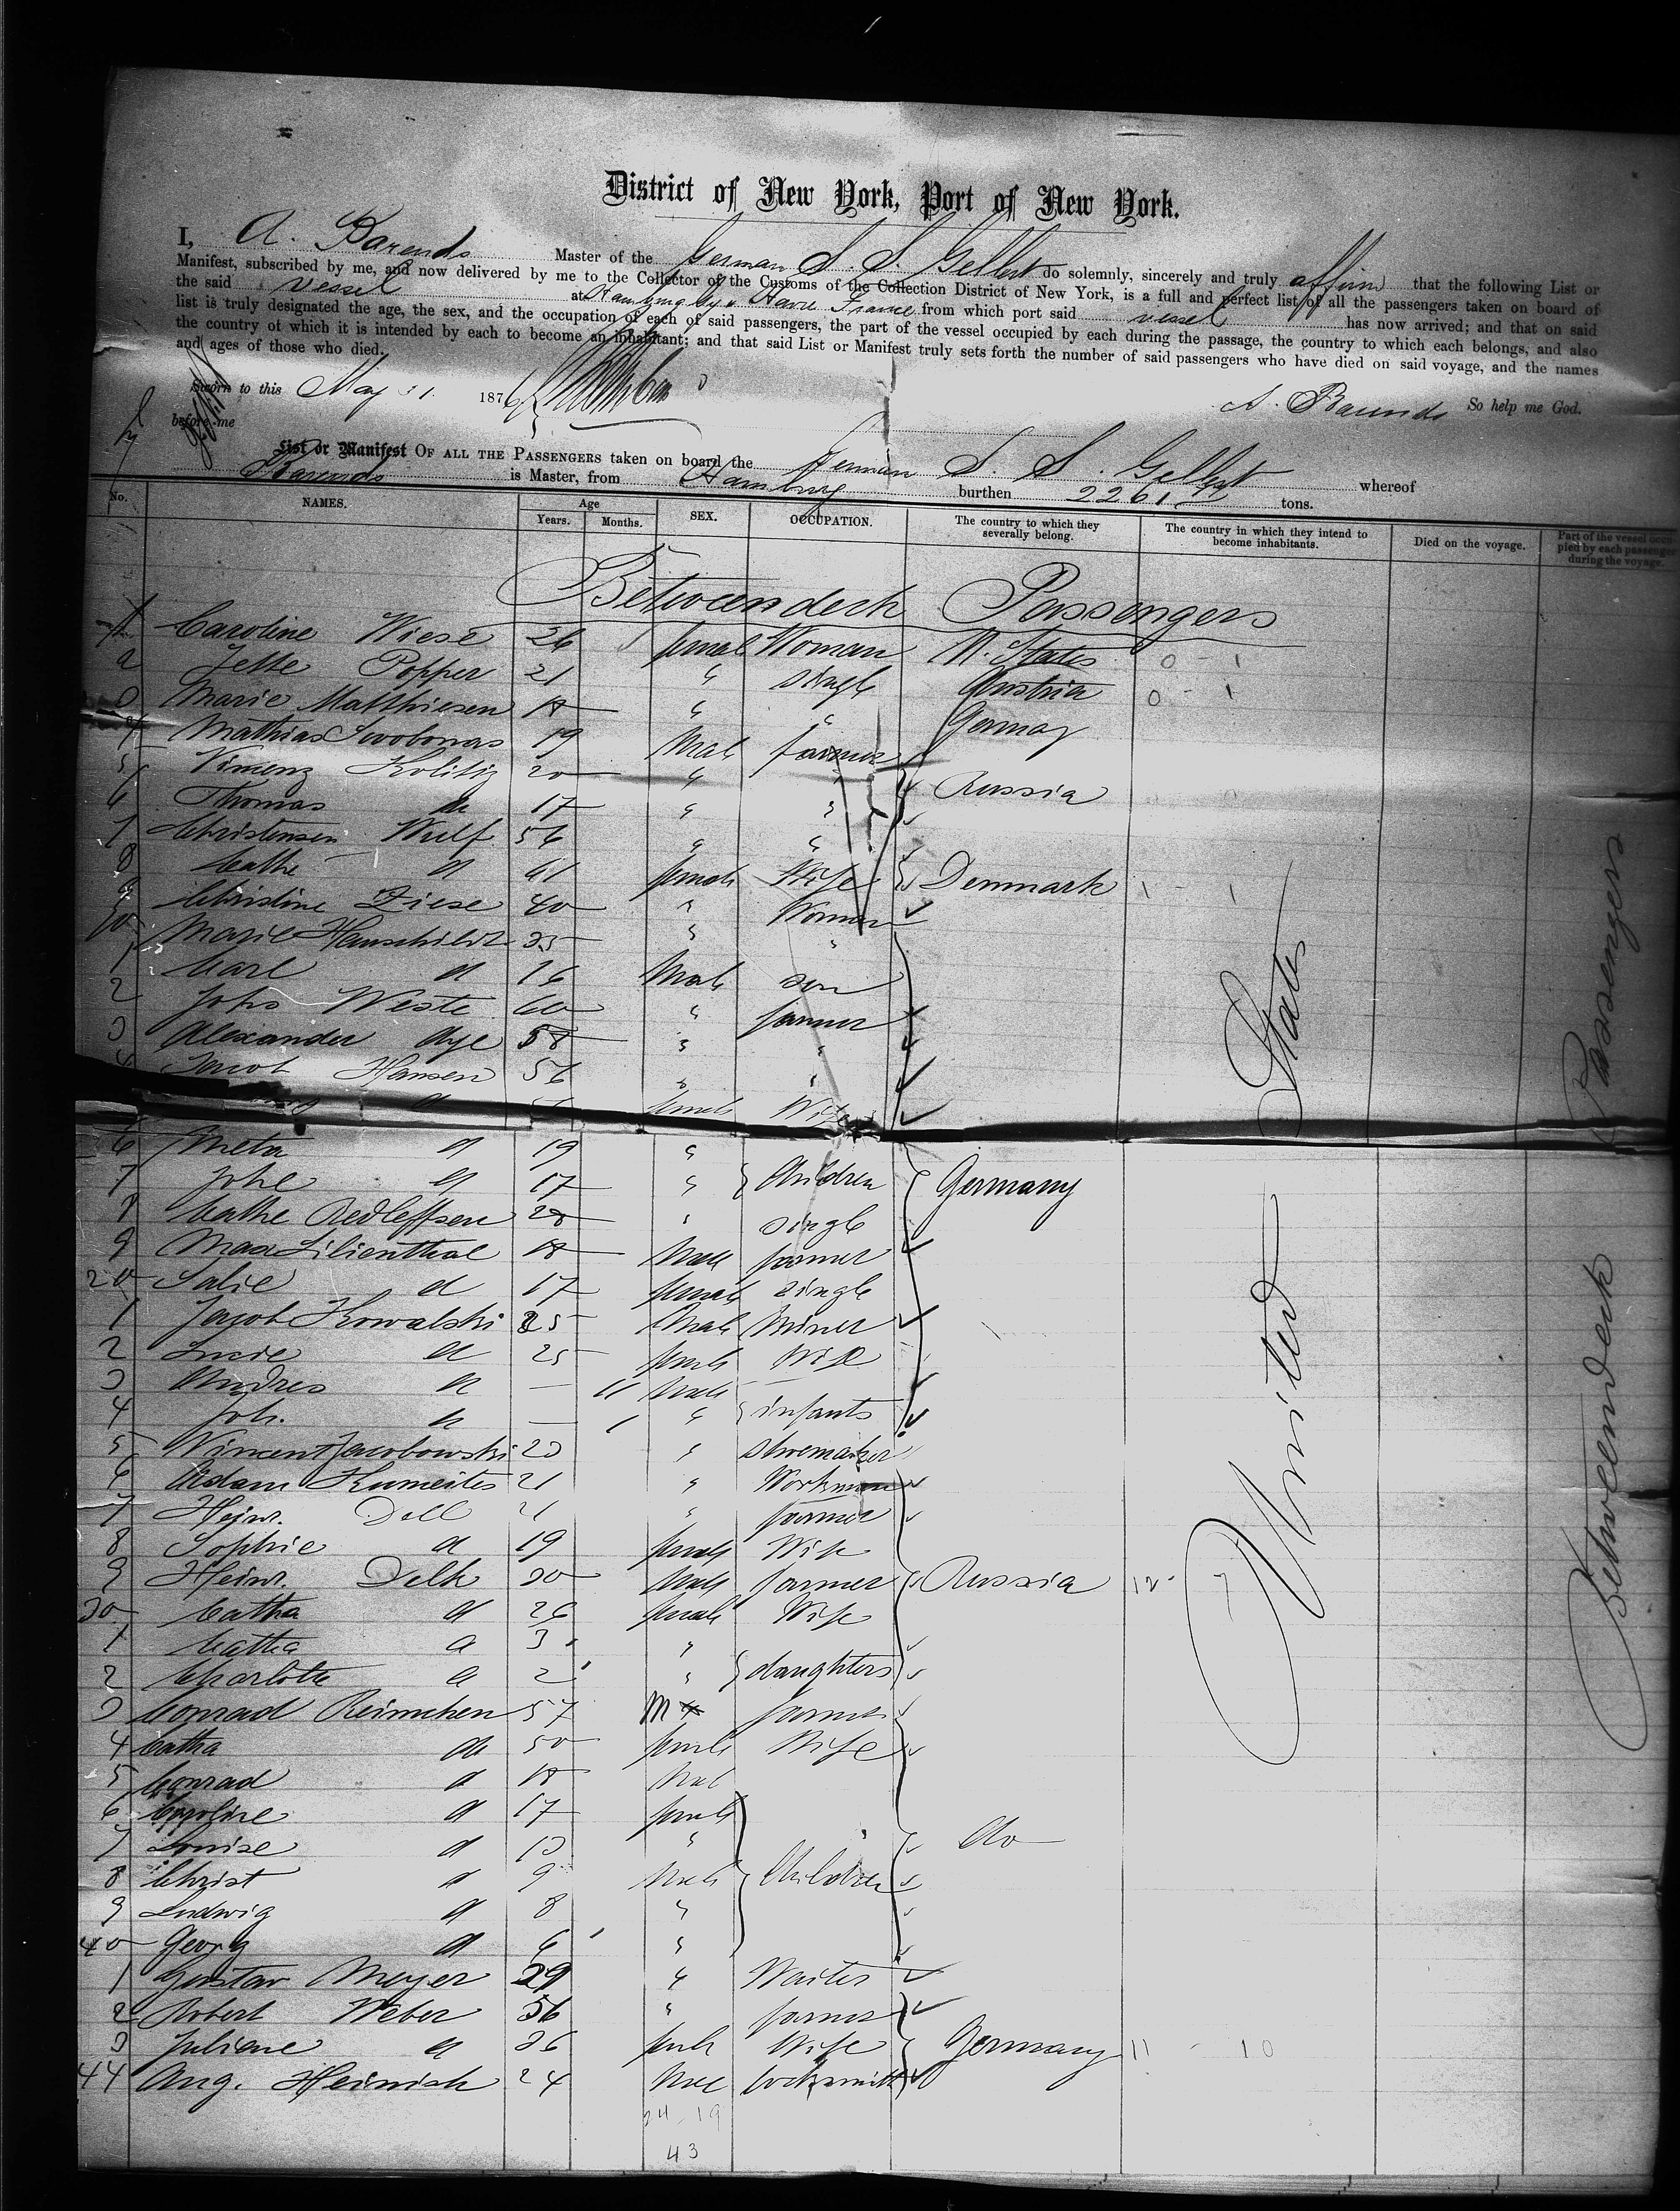 District of New York, Port of New York.
I, A. Barends Master of the German S. S. Gellert do solemnly, sincerely and truly affirm that the following List or
Manifest, subscribed by me, and now delivered by me to the Collector of the Customs of the Collection District of New York, is a full and perfect list of all the passengers taken on board of
the said vessel at Hamburg & Havre France from which port said vessel has now arrived; and that on said
list is truly designated the age, the sex, and the occupation of each of said passengers, the part of the vessel occupied by each during the passage, the country to which each belongs, and also
the country of which it is intended by each to become an inhabitant; and that said List or Manifest truly sets forth the number of said passengers who have died on said voyage, and the names
and ages of those who died.
Sworn to this May 31. 1876
A. Barends So help me God.
before me
List or Manifest OF ALL THE PASSENGERS taken on board the German S. S. Gellert whereof
Barends is Master, from Hamburg burthen 2261 tons.
No. NAMES. Age Years. Months. SEX. OCCUPATION. The country to which they severally belong. The country in which they intend to become inhabitants. Died on the voyage. Part of the vessel occupied by each passenger during the voyage.
Betweendeck Passengers
1 Caroline Wiese 26 female Woman U. States 0 - 1
2 Jette Popper 21 " single Austria 0 - 1
3 Marie Matthiesen 18 " " Germay
4 Mathias 19 Male farmer
5 Vincenz 20 " "
Russia
6 Thomas do 17 " "
7 Christensen Wulf 56 " "
8 Cathe d 41 female Wife Denmark 1 - 1
9 Christine Ziese 40 " Woman
10 Marie Hauschildt 35 " "
1 Carl d 16 Male son
2 Johs Weste 60 " farmer
3 Alexander Aye 58 " "
4 Jacob Hansen 56 " "
d female Wife
6 Meta d 19 "
7 Johe d 17 " Children Germany
8 Cathe Redleffsen 28 " single
9 Max Lilienthal 18 Male farmer
20 Salie d 17 female single
1 Jacob Kowalski 25 Male Miner
2 Lucie d 25 female Wife
3 Andres d — 11 Male
4 Joh. d — 1 " infants
5 Vincent Jacobowski 23 " shoemaker
6 Adam Kumeites 21 " Workman
7 Heinr. Dell 21 " farmer
8 Sophie d 19 female Wife
9 Heinr. Delk 30 Male farmer Russia 12 - 7
30 Catha d 26 female Wife
1 Catha d 3 "
2 Charlotte d 2 " daughters
3 Conrad Reimchen 57 M farmer
4 Catha do 50 female Wife
5 Conrad d 18 Male
6 Caroline d 17 female
7 Louise d 13 " do
8 Christ d 9 Male Children
9 Ludwig d 8 "
40 Georg d 6 "
1 Gustav Meyer 29 " Waiter
2 Robert Weber 36 " farmer
3 Juliane d 36 female Wife Germany 11 - 10
44 Aug. Heinich 24 Male locksmith
24 - 19
43
United States
Betweendeck Passengers